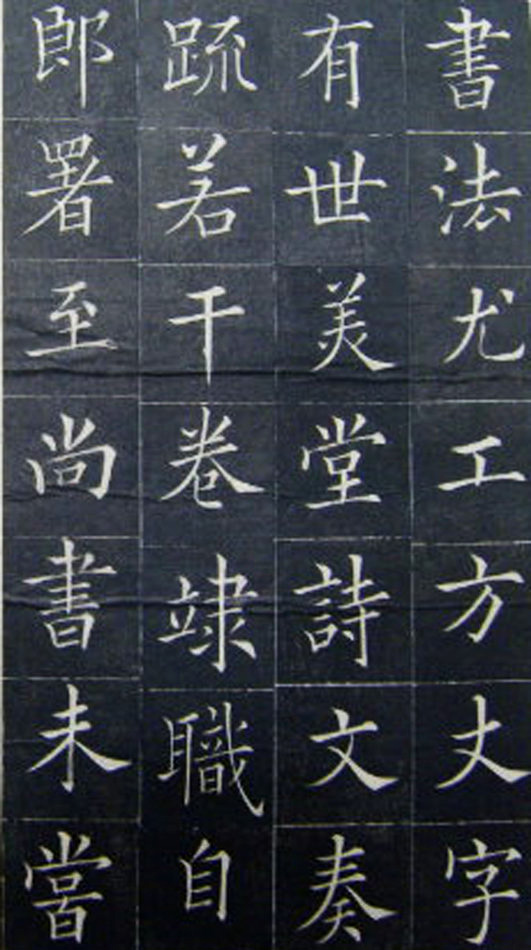 書法尤工方丈字
有世美堂詩文奏
疏若干卷隸職自
郎署至尚書未嘗